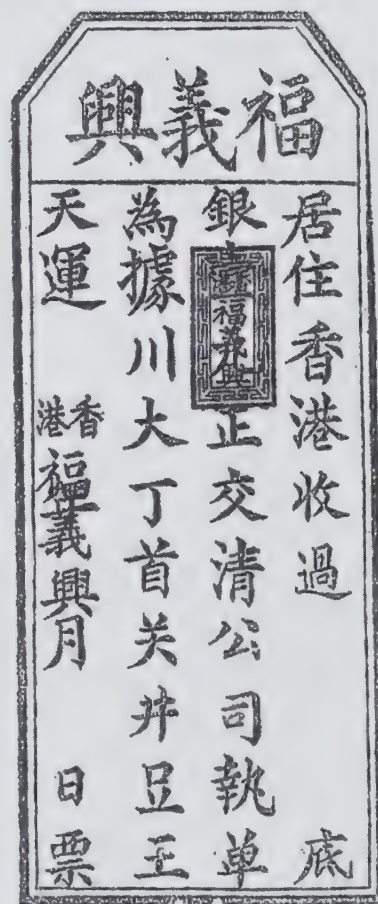 福義興
居住香港收過 底
銀 福義興 正交清公司執單
為據川大丁首关井豆王
天運 香港 福義興 月 日票